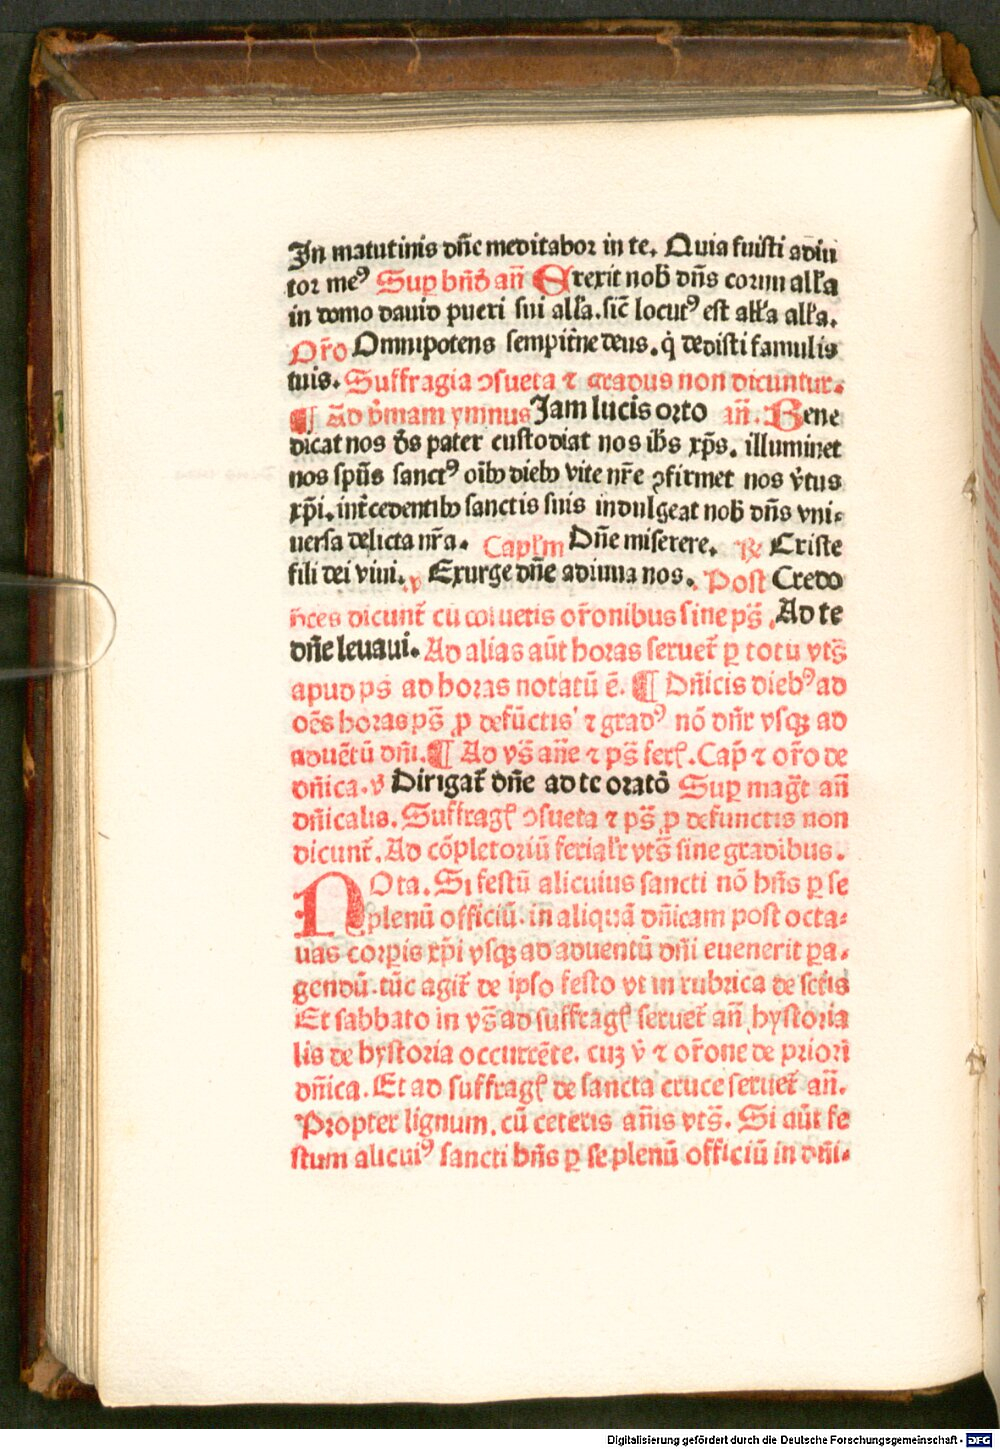 In matutinis dñe meditabor in te. Quia fuisti adiu
tor meꝰ Suꝑ bñd̄ an̄ Erexit nob̄ dñs cornu all'a
in domo dauid pueri sui all'a. sic̄ locutꝰ est all'a all'a.
Or̄o Omnipotens sempit̄ne deus. q̇ dedisti famulis
tuis. Suffragia ↄsueta ⁊ gradus non dicuntur.
¶ Ad p̄mam ymnus Jam lucis orto an̄. Bene
dicat nos d̄s pater custodiat nos ih̄s xp̄s. illuminet
nos spūs sanctꝰ oib̄ dieb̄ vite nr̄e ↄfirmet nos v̄tus
xp̄i. int̄cedentib̄ sanctis suis indulgeat nob̄ dñs vni-
uersa delicta nr̄a. Capl'm Dñe miserere. ℟ Criste
fili dei viui. v Exurge dñe adiuua nos. Post Credo
h̄ces dicunt̄ cū ꝯsuetis or̄onibus sine ps̄. Ad te
dñe leuaui. Ad alias aūt horas seruet̄ ꝑ totū vts̄
apud ps̄ ad horas notatū ē. ¶ Dñicis diebꝰ ad
oēs horas ps̄ ꝓ defūctis ⁊ gradꝰ nō dñr vsqꝫ ad
aduētū dñi. ¶ Ad vs̄ añe ⁊ ps̄ ferl̄. Cap̄ ⁊ or̄o de
dñica. v Dirigat̄ dñe ad te oratō Suꝑ magt̄ an̄
dñicalis. Suffragl̄ ↄsueta ⁊ ps̄ ꝓ defunctis non
dicunt̄. Ad cōpletoriū ferial'r vts̄ sine gradibus.
NOta. Si festū alicuius sancti nō hñs ꝑ se
plenū officiū. in aliquā dñicam post octa-
uas corꝑis xp̄i vsqꝫ ad aduentū dñi euenerit ꝑa-
gendū. tūc agit̄ de ipso festo vt in rubrica de sctīs
Et sabbato in vs̄ ad suffragl̄ seruet̄ an̄ hystoria
lis de hystoria occurrēte. cuꝫ v̇ ⁊ or̄one de priori
dñica. Et ad suffragl̄ de sancta cruce seruet̄ an̄.
Propter lignum. cū ceteris añis vts̄. Si aūt fe
stum alicuiꝰ sancti hñs ꝑ se plenū officiū in dñi-
Digitalisierung gefördert durch die Deutsche Forschungsgemeinschaft - DFG